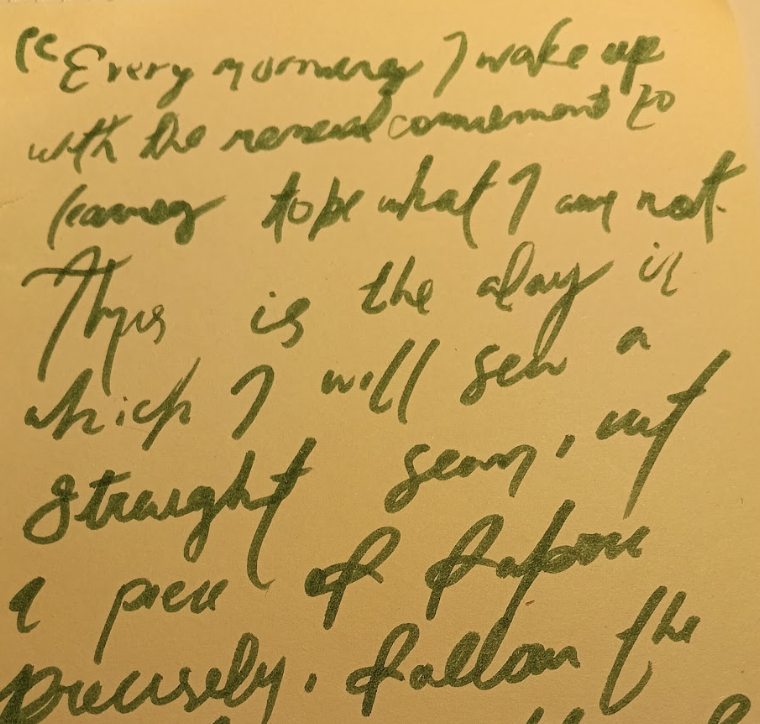 "Every morning I wake up
with the renewed commitment to
learning to be what I am not.
This is the day in
which I will sew a
straight seam, cut
a piece of fabric
precisely, follow the